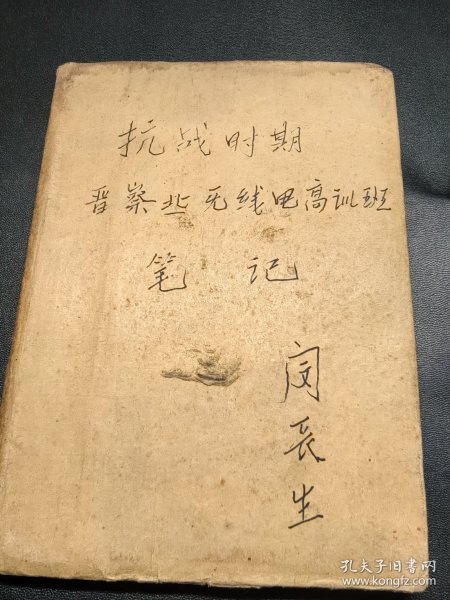 抗战时期
晋察北无线电高训班
笔记
闵长生
孔夫子旧书网
www.kongfz.com